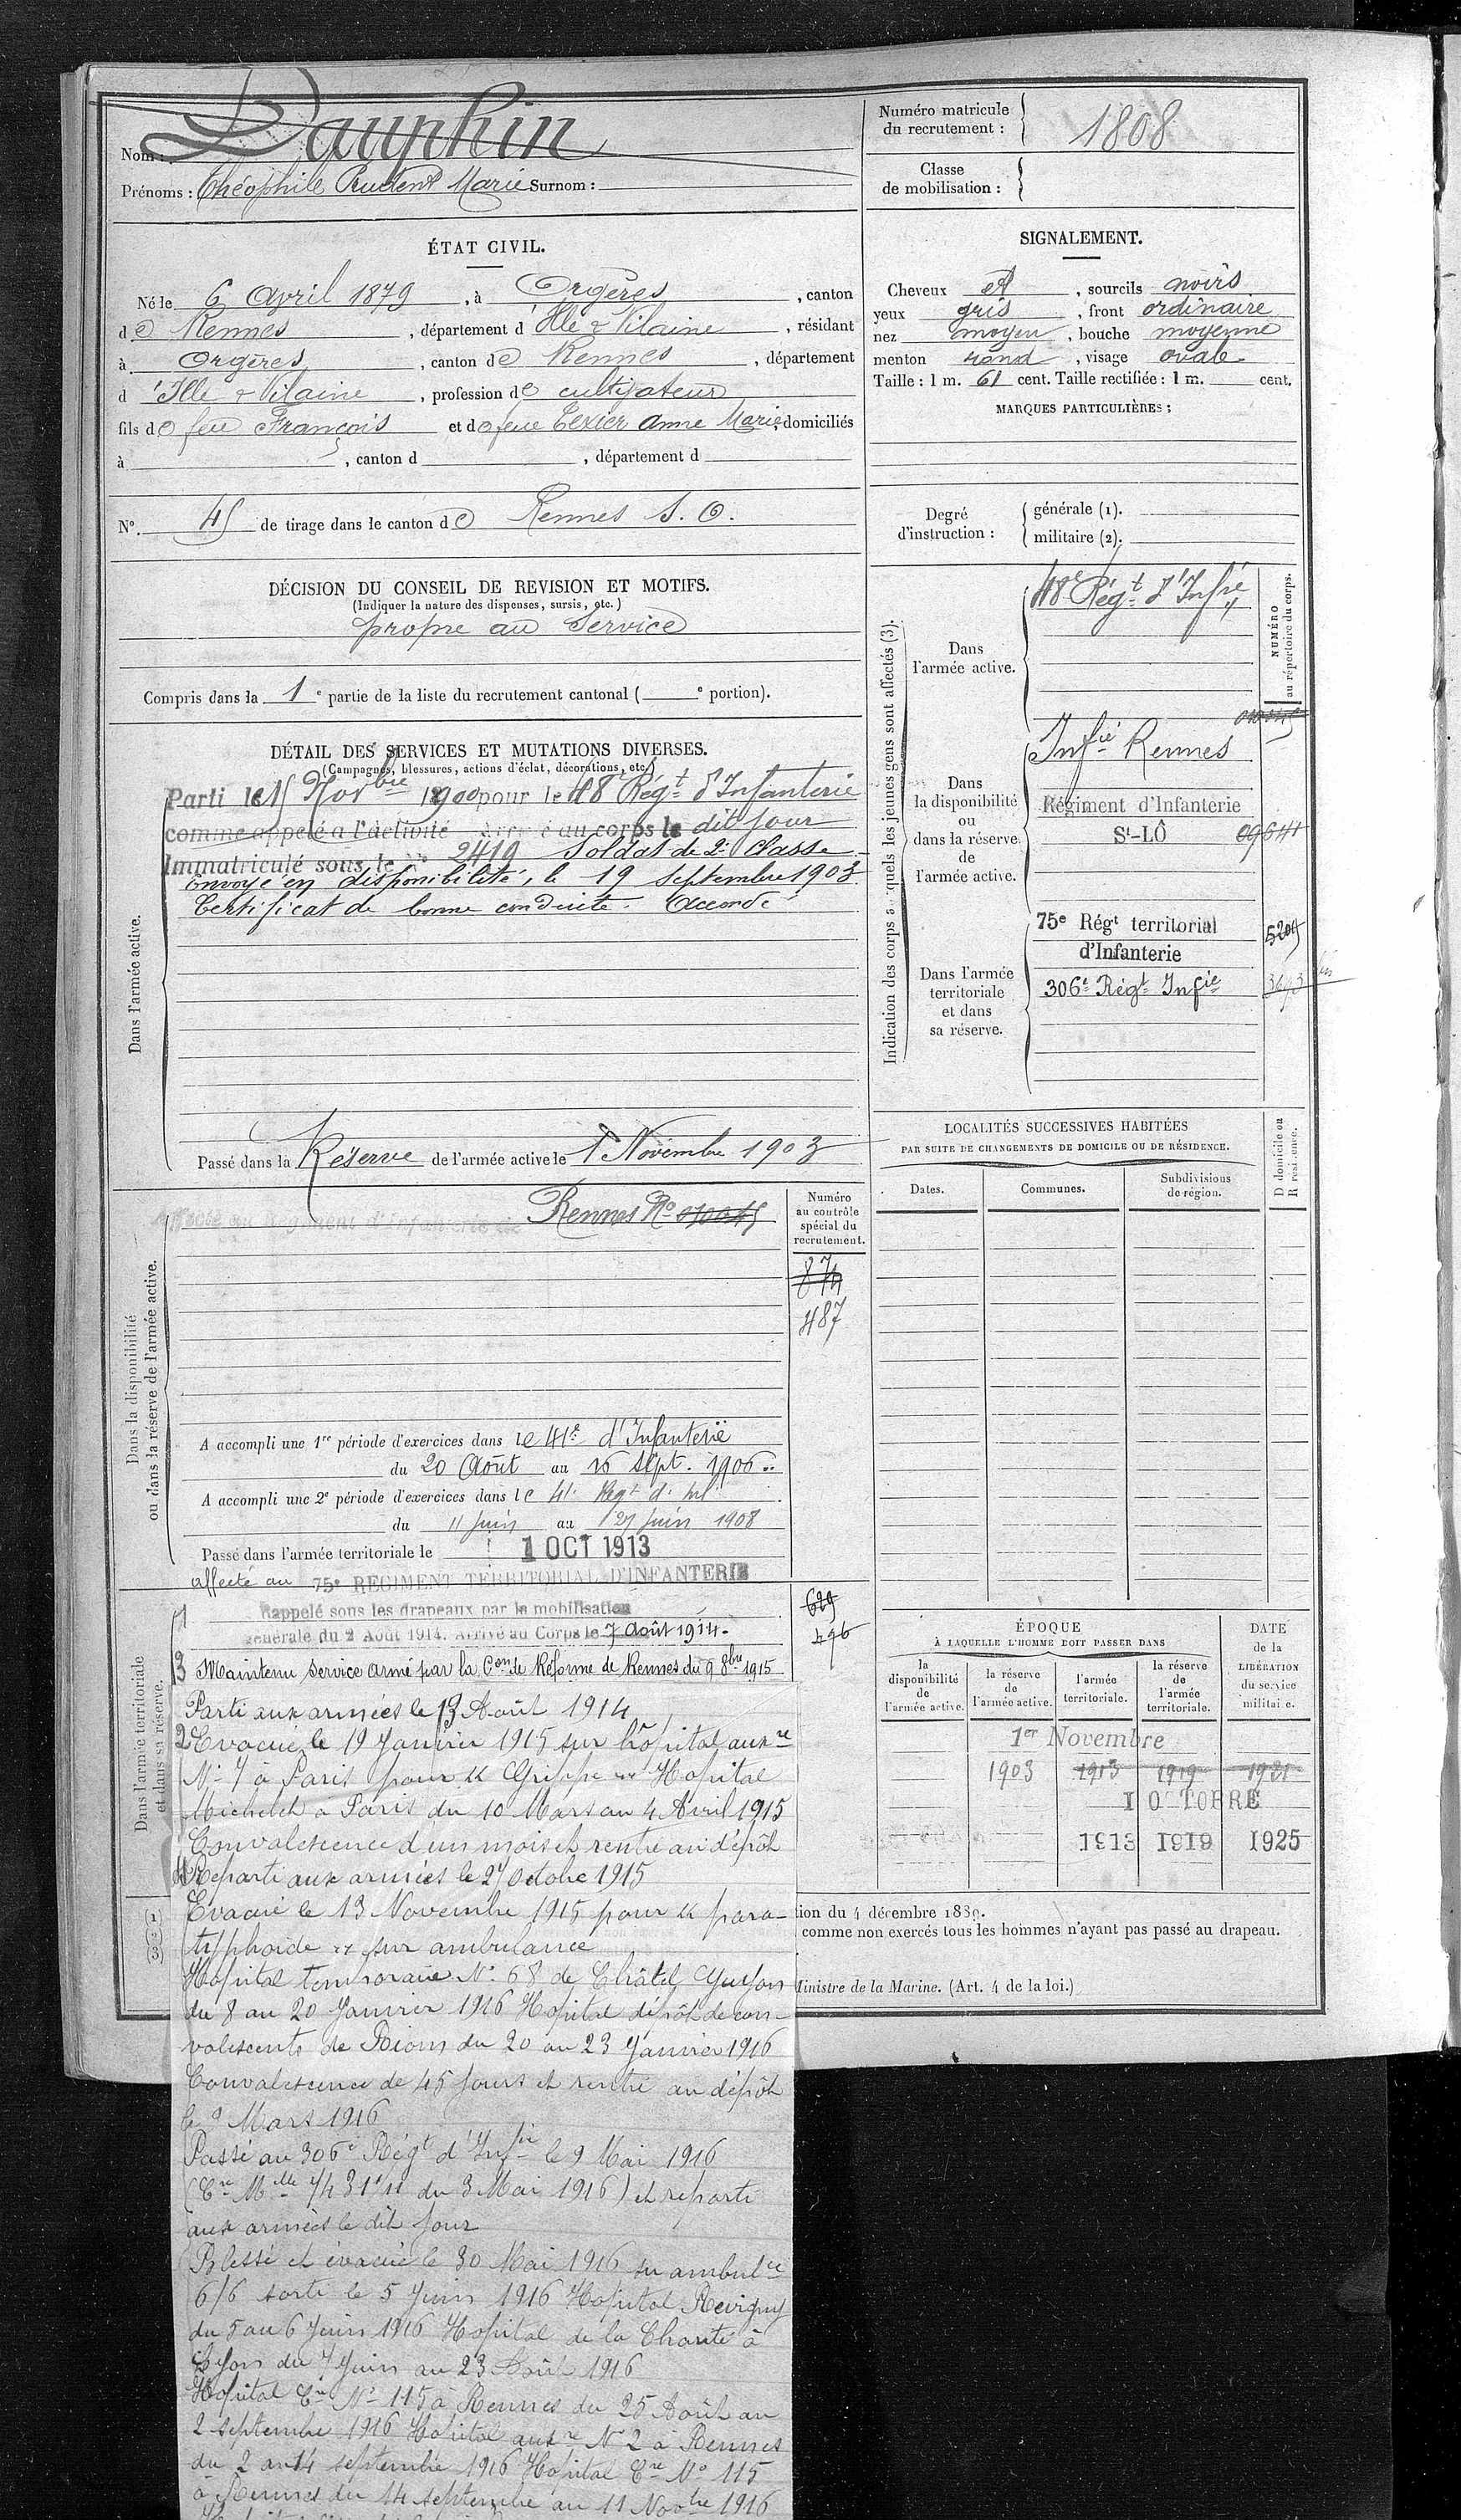 Nom : Dauphin
Prénoms : Théophile Prudent Marie Surnom :
Numéro matricule
du recrutement : 1808
Classe
de mobilisation :
ÉTAT CIVIL.
Né le 6 Avril 1879, à Orgères, canton
de Rennes, département d'Ille & Vilaine, résidant
à Orgères, canton de Rennes, département
d'Ille & Vilaine, profession de cultivateur
fils de feu François et de feue Texier Anne Marie, domiciliés
à , canton d , département d
N°. 45 de tirage dans le canton de Rennes S. O.
DÉCISION DU CONSEIL DE REVISION ET MOTIFS.
(Indiquer la nature des dispenses, sursis, etc.)
propre au Service
Compris dans la 1e partie de la liste du recrutement cantonal ( e portion).
DÉTAIL DES SERVICES ET MUTATIONS DIVERSES.
(Campagnes, blessures, actions d'éclat, décorations, etc.)
Dans l'armée active.
Parti le 15 Novbre 1900 pour le 48e Régt d'Infanterie
comme appelé à l'activité Arrivé au corps le dit jour
Immatriculé sous le No 2419 Soldat de 2e Classe
Envoyé en disponibilité, le 19 Septembre 1903
Certificat de bonne conduite. Accordé
Passé dans la Réserve de l'armée active le 1er Novembre 1903
Dans la disponibilité
ou dans la réserve de l'armée active.
Affecté au Régiment d'Infanterie de Rennes No
Numéro
au contrôle
spécial du
recrutement.
874
487
A accompli une 1re période d'exercices dans le 41e d'Infanterie
du 20 Août au 16 Sept. 1906
A accompli une 2e période d'exercices dans le 41e Régt d'Inf
du 11 Juin au 27 Juin 1908
Passé dans l'armée territoriale le 1 OCT 1913
affecté au 75e REGIMENT TERRITORIAL D'INFANTERIE
Dans l'armée territoriale
et dans sa réserve.
1 Rappelé sous les drapeaux par la mobilisation
générale du 2 Août 1914. Arrivé au Corps le 7 Août 1914.
629
496
3 Maintenu service armé par la Con de Réforme de Rennes du 9 8bre 1915
Parti aux armées le 13 Août 1914
2 Evacué le 19 Janvier 1915 sur hôpital auxre
No 7 à Paris pour « Grippe » Hopital
Michelet à Paris du 10 Mars au 4 Avril 1915
Convalescence d'un mois et rentré au dépôt
4 Reparti aux armées le 27 Octobre 1915
Evacué le 13 Novembre 1915 pour « para-
typhoïde » sur ambulance
Hopital temporaire No 68 de Châtel Guyon
du 8 au 20 Janvier 1916 Hopital dépôt de con-
valescents de Riom du 20 au 23 Janvier 1916
Convalescence de 45 jours et rentré au dépôt
le 9 Mars 1916
Passé au 306e Régt d'Infie le 9 Mai 1916
du 3 Mai 1916) et reparti
aux armées le dit jour
Blessé et évacué le 30 Mai 1916 sur ambulce
6/6 sorti le 5 Juin 1916 Hopital Revigny
du 5 au 6 Juin 1916 Hopital de la Charité à
Lyon du 7 Juin au 23 Août 1916
Hopital Cre No 115 à Rennes du 25 Août au
2 septembre 1916 Hopital auxre No 2 à Rennes
du 2 au 14 septembre 1916 Hopital Cre No 115
à Rennes du 14 septembre au 11 Novbre 1916
SIGNALEMENT.
Cheveux et, sourcils noirs
yeux gris, front ordinaire
nez moyen, bouche moyenne
menton rond, visage ovale
Taille : 1 m. 61 cent. Taille rectifiée : 1 m. cent.
MARQUES PARTICULIÈRES :
Degré
d'instruction :
générale (1).
militaire (2).
Indication des corps auxquels les jeunes gens sont affectés (3).
NUMÉRO
au répertoire du corps.
Dans
l'armée active.
48e Régt d'Infie
Dans
la disponibilité
ou
dans la réserve
de
l'armée active.
Infie Rennes
Régiment d'Infanterie
St-LÔ 09641
Dans l'armée
territoriale
et dans
sa réserve.
75e Régt territorial
d'Infanterie
306e Régt Infie
LOCALITÉS SUCCESSIVES HABITÉES
PAR SUITE DE CHANGEMENTS DE DOMICILE OU DE RÉSIDENCE.
Dates.
Communes.
Subdivisions
de région.
D domicile ou
R résidence.
ÉPOQUE
À LAQUELLE L'HOMME DOIT PASSER DANS
DATE
de la
LIBÉRATION
du service
militaire.
la
disponibilité
de
l'armée active.
la réserve
de
l'armée active.
l'armée
territoriale.
la réserve
de
l'armée
territoriale.
1er Novembre
1903 1913 1919 1921
1 OCTOBRE
1913 1919 1925
(1)
(2)
(3)
tion du 4 décembre 1889.
comme non exercés tous les hommes n'ayant pas passé au drapeau.
Ministre de la Marine. (Art. 4 de la loi.)